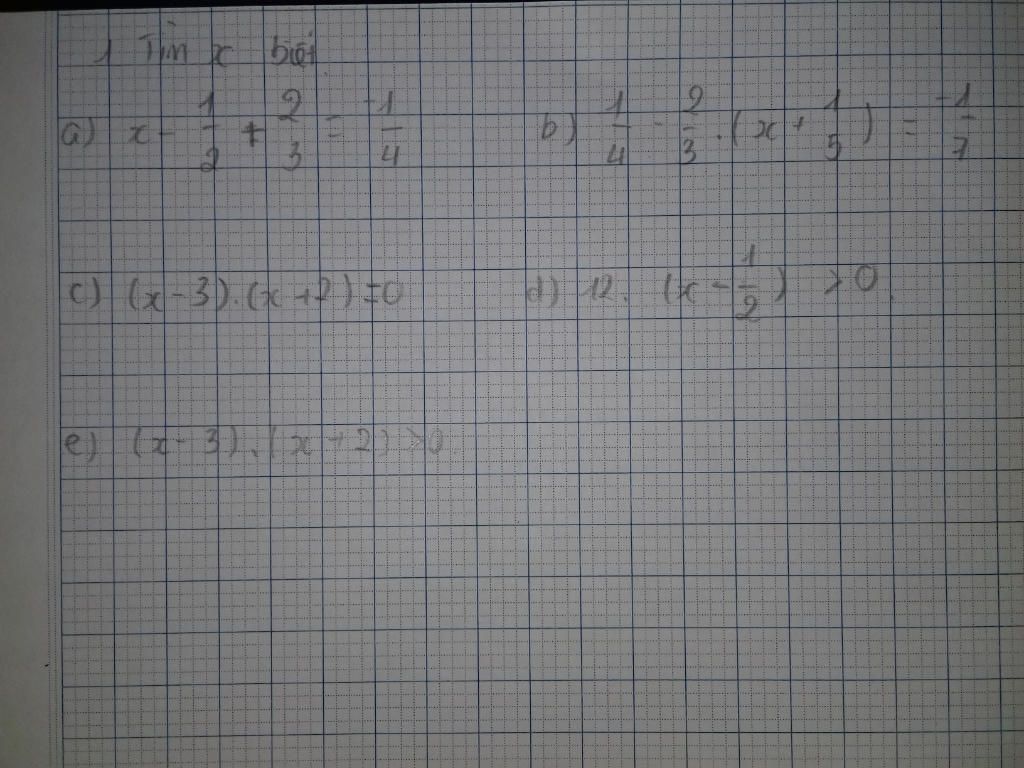 1 Tìm x biết
a) x - 1/2 + 2/3 = -1/4 b) 1/4 - 2/3 . (x + 1/5) = -1/7
c) (x - 3).(x + 2) = 0 d) 12. (x - 1/2) > 0.
e) (x - 3).(x + 2) > 0